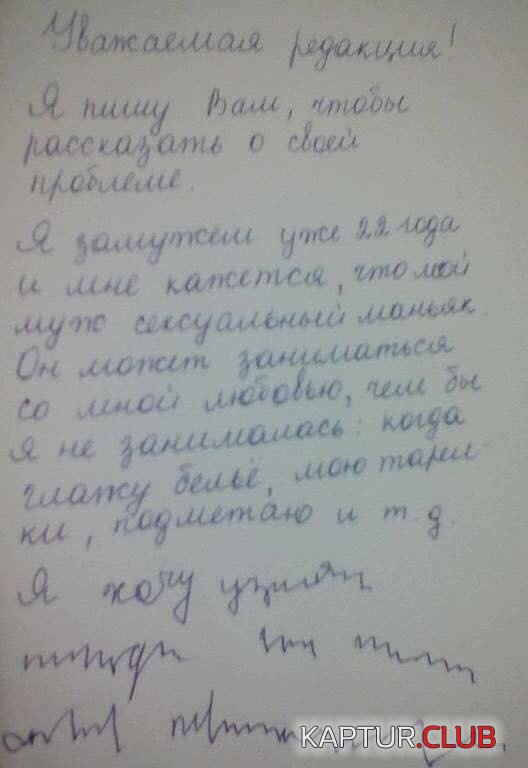 Уважаемая редакция!
Я пишу Вам, чтобы
рассказать о своей
проблеме.
Я замужем уже 22 года
и мне кажется, что мой
муж сексуальный маньяк.
Он может заниматься
со мной любовью, чем бы
я не занималась: когда
глажу бельё, мою тарел-
ки, подметаю и т.д.
Я хочу
KAPTUR.CLUB